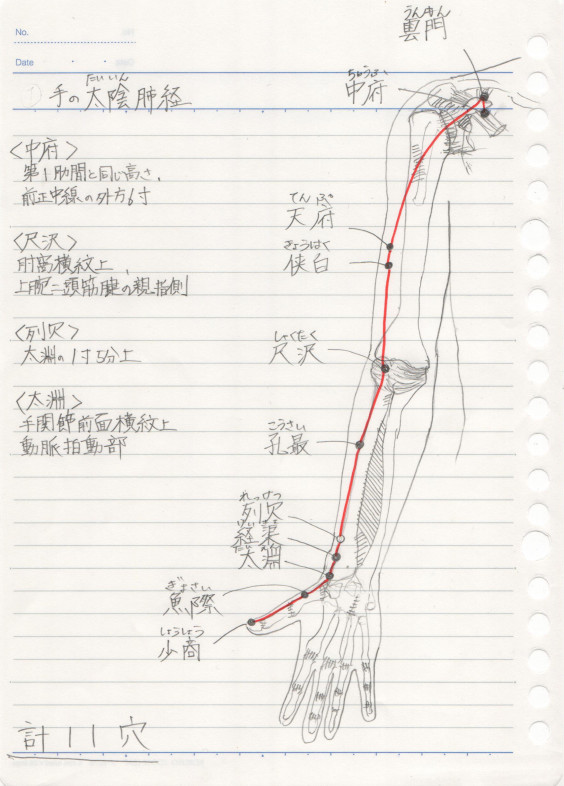 No.
Date
うんもん
雲門
ちゅうふ
中府
たいいん
手の太陰肺経
<中府>
第1肋間と同じ高さ、
前正中線の外方6寸
てんぷ
天府
きょうはく
侠白
<尺沢>
肘窩横紋上、
上腕二頭筋腱の親指側
しゃくたく
尺沢
<列穴>
太淵の1寸5分上
<太淵>
手関節前面横紋上
動脈拍動部
こうさい
孔最
れっけつ
列穴
経渠
太淵
ぎょさい
魚際
しょうしょう
少商
計11穴